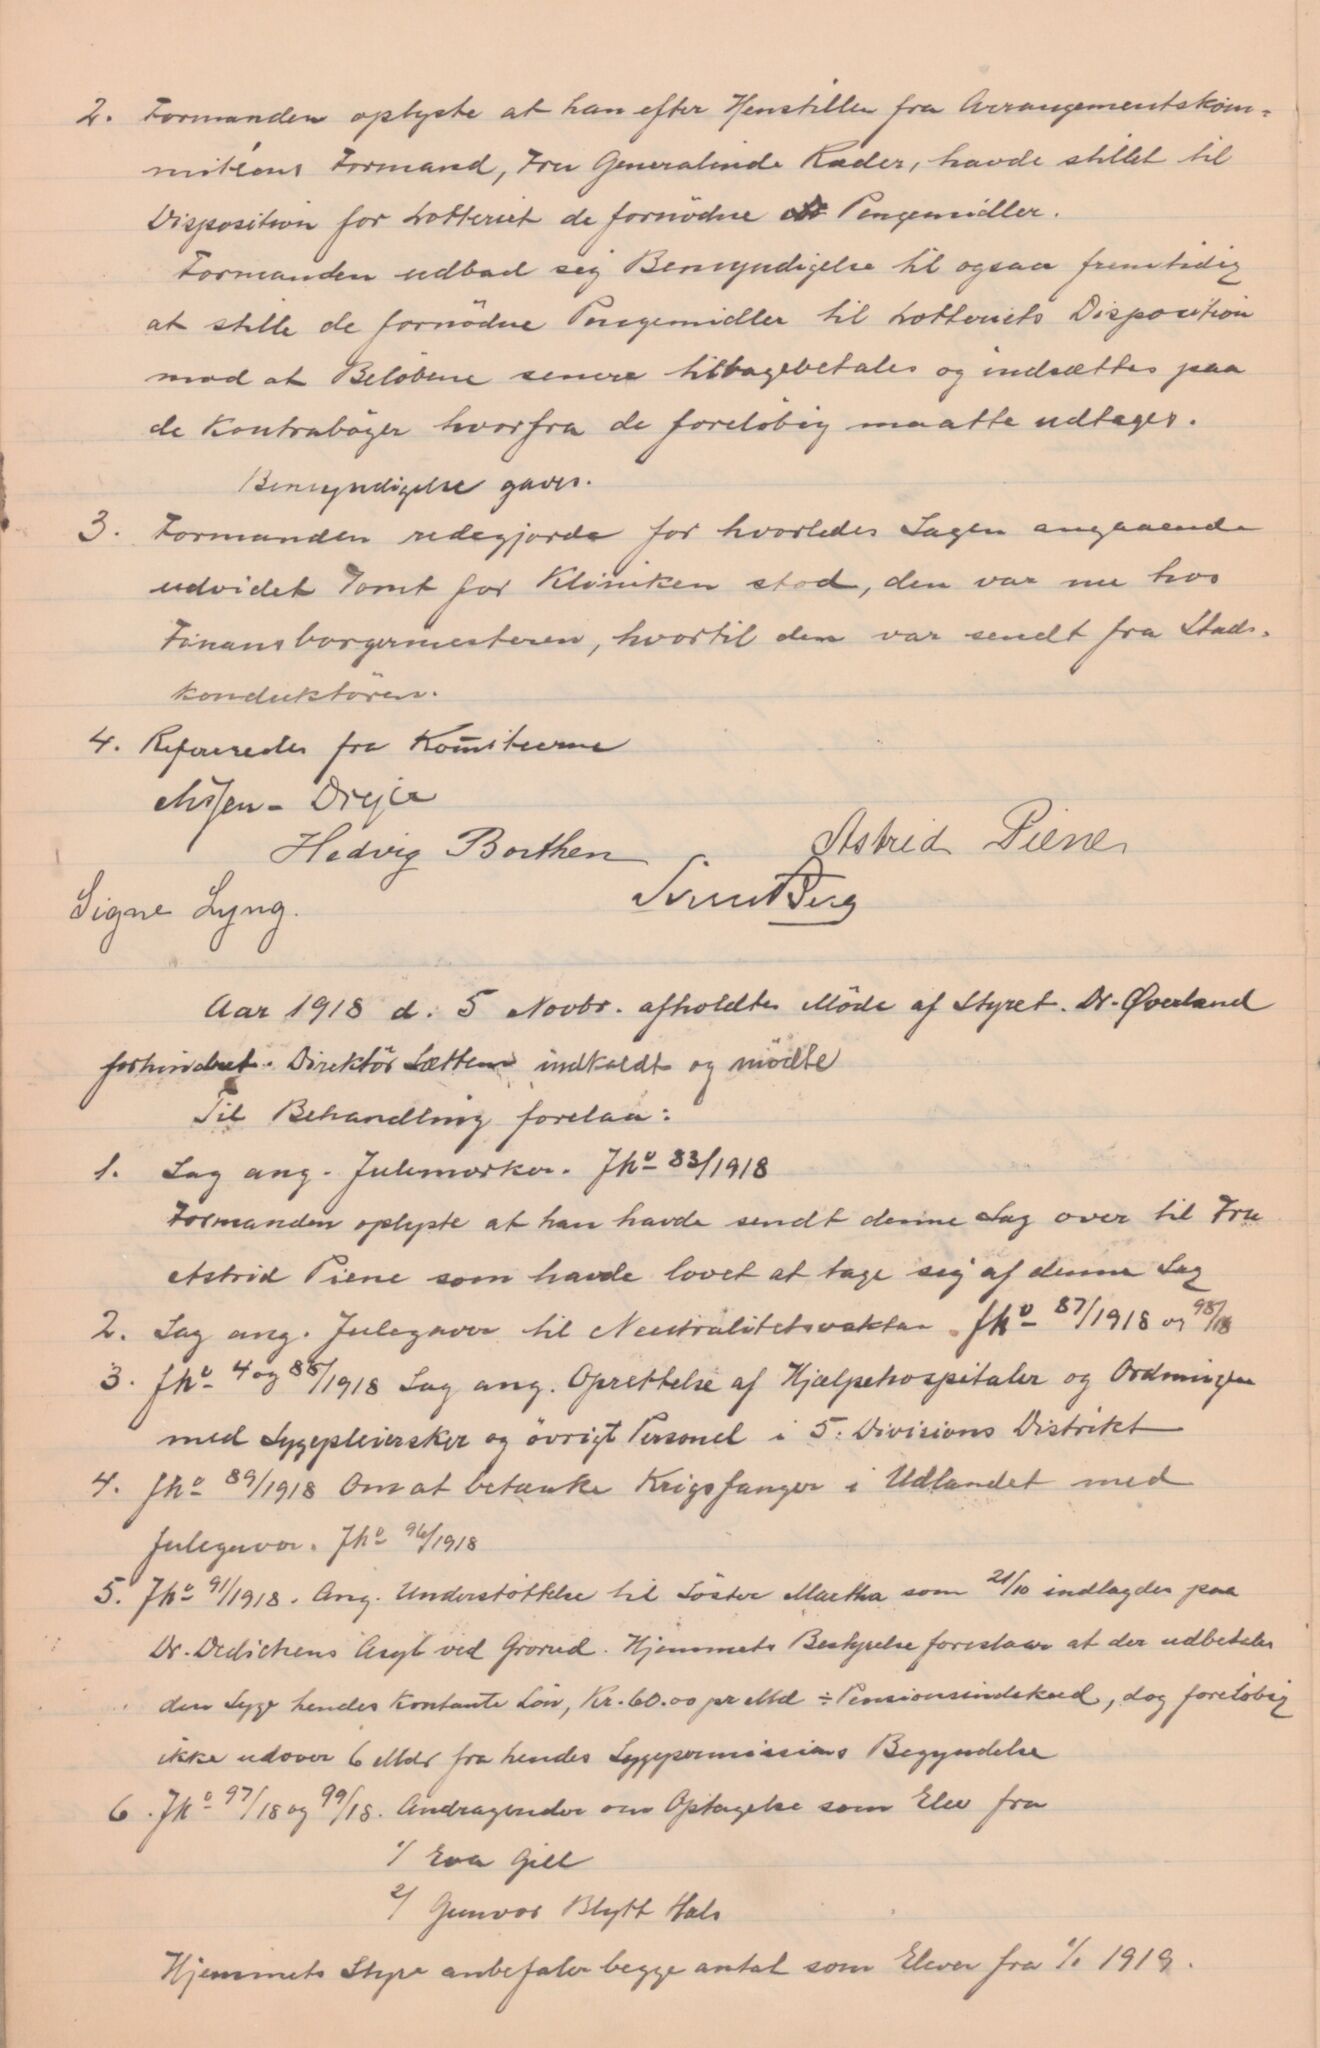 2. Formanden oplyste at han efter Henstillen fra Arrangementskom-
miteens Formand, Fru Generalinde Kader, havde stillet til
Disposition for Lotteriet de fornödne Pengemidler.
Formanden udbad sig Bemyndigelse til ogsaa fremtidig
at stille de fornödne Pengemidler til Lotteriets Disposition
mod at Belöbene senere tilbagebetales og indsættes paa
de Kontraböger hvorfra de forelöbig maatte udtages.
Bemyndigelse gaves.
3. Formanden redegjorde for hvorledes Sagen angaaende
udvidet Tomt for Kliniken stod, den var nu hos
Finansborgermesteren, hvortil den var sendt fra Stads-
konduktören.
4. Refereredes fra Komiteerne
Dreje
Hedvig Borthen Astrid Piene
Signe Lyng.
Aar 1918 d. 5 Novbr. afholdtes Möde af Styret. Dr. Øverland
forhindret. Direktör Sættem indkaldt og mödte
Til Behandling forelaa:
1. Sag ang. Julemærker. Jno 83/1918
Formanden oplyste at han havde sendt denne Sag over til Fru
Astrid Piene som havde lovet at tage sig af denne Sag
2. Sag ang. Julegaver til Neutralitetsvakten. Jno 87/1918 og 98/18
3. Jno 4 og 88/1918 Sag ang. Oprettelse af Hjælpehospitaler og Ordningen
med Sygepleiersker og övrigt Personel i 5. Divisions Distrikt
4. Jno 89/1918 Om at betænke Krigsfanger i Udlandet med
Julegaver. Jno 96/1918
5. Jno 91/1918. Ang. Understöttelse til Söster Martha som 21/10 indlagdes paa
Dr. Dedichens Asyl ved Grorud. Hjemmets Bestyrelse foreslaar at der udbetales
den Syge hendes kontante Lön, Kr. 60.00 pr Md ÷ Pensionsindskud, dog forelöbig
ikke udover 6 Mdr fra hendes Sygepermissions Begyndelse
6. Jno 97/18 og 99/18. Andragender om Optagelse som Elev fra
1/ Eva Gill
2/ Gunvor Blytt Hals
Hjemmets Styre anbefaler begge antat som Elever fra 1/1 1919.